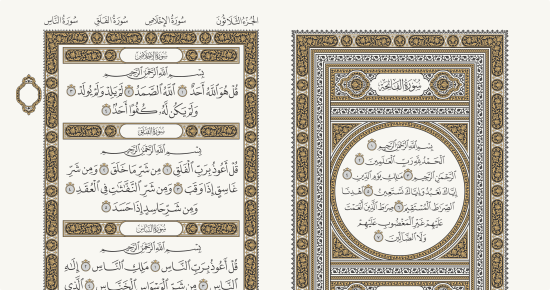 الجزء الثلاثون سورة الإخلاص سورة الفلق سورة الناس
سورة الإخلاص
بِسْمِ اللَّهِ الرَّحْمَٰنِ الرَّحِيمِ
قُلْ هُوَ اللَّهُ أَحَدٌ ۝ اللَّهُ الصَّمَدُ ۝ لَمْ يَلِدْ وَلَمْ يُولَدْ ۝
وَلَمْ يَكُن لَّهُ كُفُوًا أَحَدٌ ۝
سورة الفلق
بِسْمِ اللَّهِ الرَّحْمَٰنِ الرَّحِيمِ
قُلْ أَعُوذُ بِرَبِّ الْفَلَقِ ۝ مِن شَرِّ مَا خَلَقَ ۝ وَمِن شَرِّ
غَاسِقٍ إِذَا وَقَبَ ۝ وَمِن شَرِّ النَّفَّاثَاتِ فِي الْعُقَدِ ۝
وَمِن شَرِّ حَاسِدٍ إِذَا حَسَدَ ۝
سورة الناس
بِسْمِ اللَّهِ الرَّحْمَٰنِ الرَّحِيمِ
قُلْ أَعُوذُ بِرَبِّ النَّاسِ ۝ مَلِكِ النَّاسِ ۝ إِلَٰهِ
النَّاسِ ۝ مِن شَرِّ الْوَسْوَاسِ الْخَنَّاسِ ۝ الَّذِي
سورة الفاتحة
بِسْمِ اللَّهِ الرَّحْمَٰنِ الرَّحِيمِ ۝
الْحَمْدُ لِلَّهِ رَبِّ الْعَالَمِينَ ۝
الرَّحْمَٰنِ الرَّحِيمِ ۝ مَالِكِ يَوْمِ الدِّينِ ۝
إِيَّاكَ نَعْبُدُ وَإِيَّاكَ نَسْتَعِينُ ۝ اهْدِنَا
الصِّرَاطَ الْمُسْتَقِيمَ ۝ صِرَاطَ الَّذِينَ أَنْعَمْتَ
عَلَيْهِمْ غَيْرِ الْمَغْضُوبِ عَلَيْهِمْ
وَلَا الضَّالِّينَ ۝